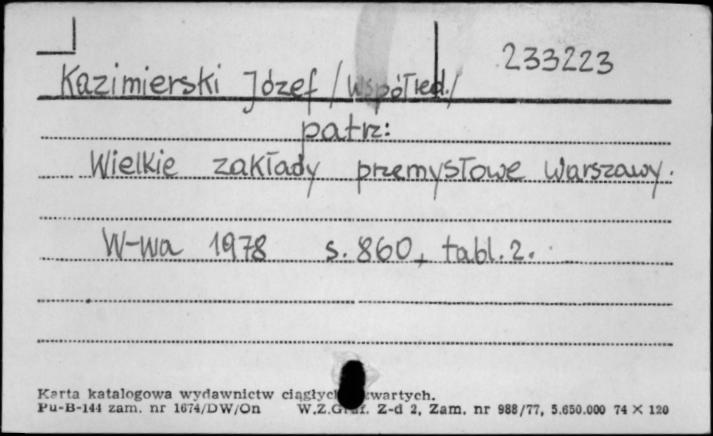 233223
Kazimierski Józef /współred./
patrz:
Wielkie zakłady przemysłowe Warszawy.
W-wa 1978 s. 860, tabl. 2.
Karta katalogowa wydawnictw ciągłych zwartych.
Pu-B-144 zam. nr 1674/DW/On W.Z.Graf. Z-d 2, Zam. nr 988/77, 5.650.000 74 × 120